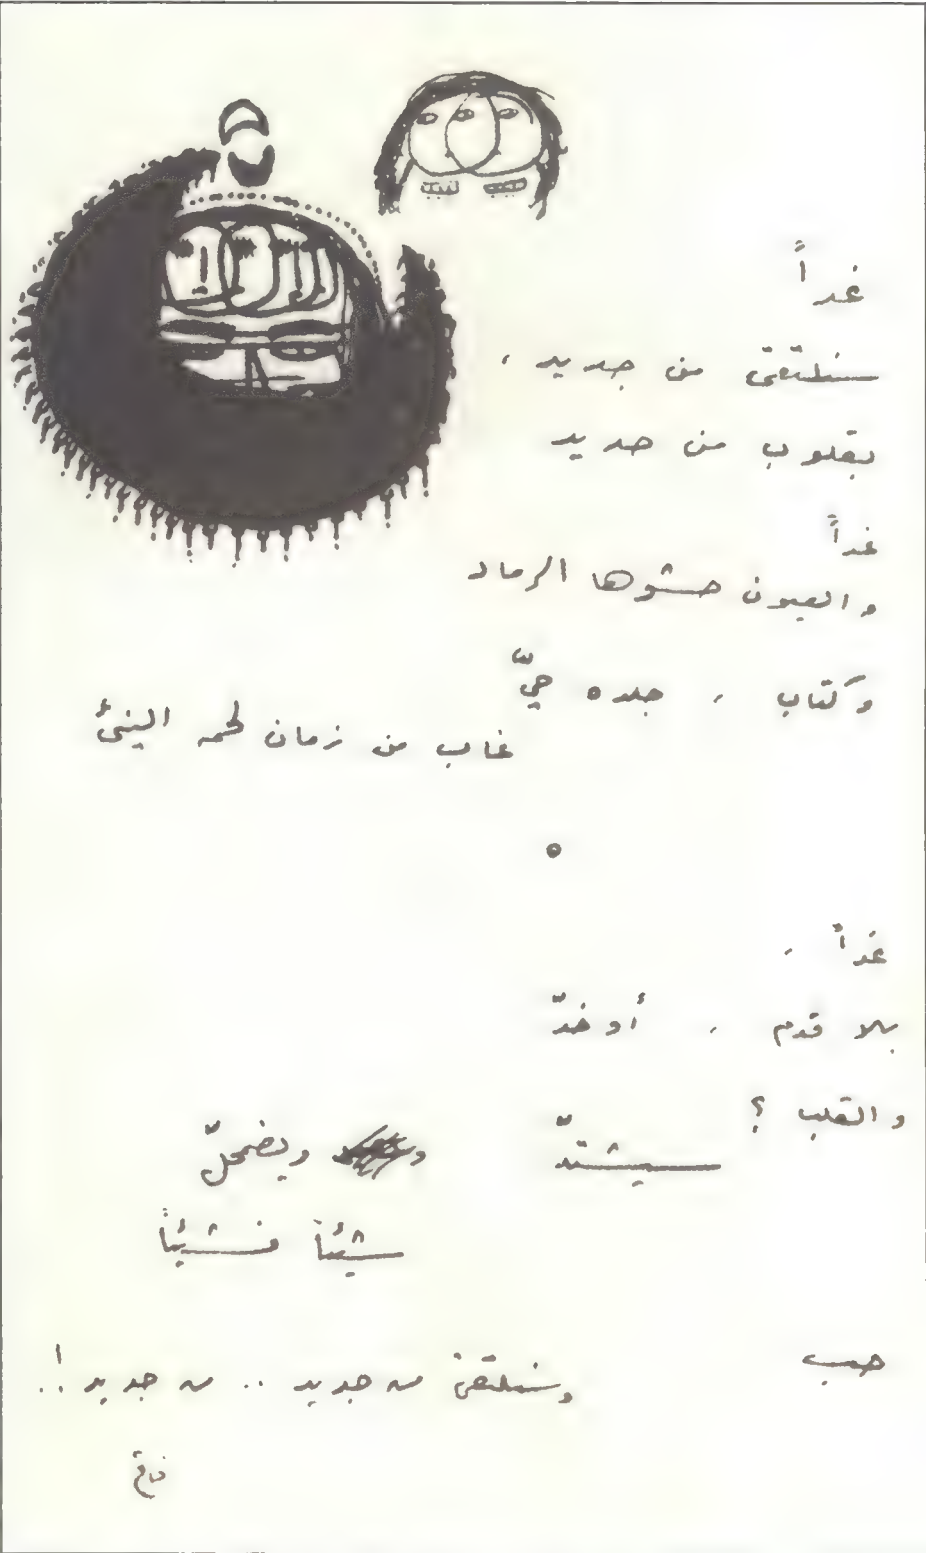 غداً
سنلتقي من جديد ،
بقلوب من حديد
غداً
والعيون حشوها الرماد
وكتاب ، جلده حيّ
غاب من زمان لحمه النيئ
غداً ،
بلا قدم ، أو خدّ
والقلب ؟
سيشتدّ ويضمحلّ
شيئاً فشيئاً
حب
وسنلتقي من جديد .. من جديد !..